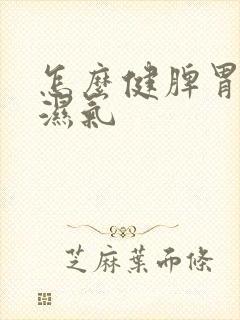 怎麼健脾胃
濕氣
芝麻葉面條